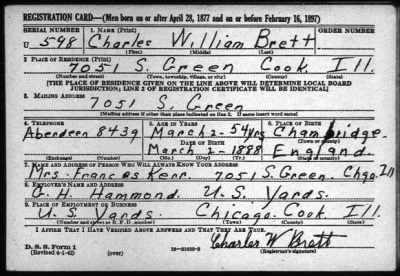 REGISTRATION CARD—(Men born on or after April 28, 1877 and on or before February 16, 1897)
SERIAL NUMBER 1. NAME (Print) ORDER NUMBER
U 598 Charles William Brett
(First) (Middle) (Last)
2. PLACE OF RESIDENCE (Print)
7051 S. Green Cook Ill.
(Number and street) (Town, township, village, or city) (County) (State)
[THE PLACE OF RESIDENCE GIVEN ON THE LINE ABOVE WILL DETERMINE LOCAL BOARD
JURISDICTION; LINE 2 OF REGISTRATION CERTIFICATE WILL BE IDENTICAL]
3. MAILING ADDRESS
7051 S. Green
[Mailing address if other than place indicated on line 2. If same insert word same]
4. TELEPHONE 5. AGE IN YEARS 6. PLACE OF BIRTH
Aberdeen 8439 March 2 - 54 yrs Chambridge.
DATE OF BIRTH (Town or county)
March 2 - 1888 England.
(Exchange) (Number) (Mo.) (Day) (Yr.) (State or country)
7. NAME AND ADDRESS OF PERSON WHO WILL ALWAYS KNOW YOUR ADDRESS
Mrs. Frances Kerr. 7051 S. Green. Chgo. Ill
8. EMPLOYER'S NAME AND ADDRESS
G. H. Hammond. U. S. Yards.
9. PLACE OF EMPLOYMENT OR BUSINESS
U. S. Yards. Chicago. Cook Ill.
(Number and street or R. F. D. number) (Town) (County) (State)
I AFFIRM THAT I HAVE VERIFIED ABOVE ANSWERS AND THAT THEY ARE TRUE.
D. S. S. Form 1 Charles W Brett
(Revised 4-1-42) (over) (Registrant's signature)